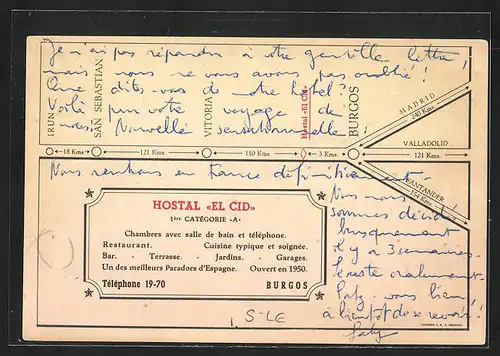 Je n'ai pas répondu à votre gentille lettre,
mais nous ne vous avons pas oublié !
Que dites-vous de notre hôtel ?
Voilà pour votre voyage de
noces. Nouvelle sensationnelle
IRUN
SAN SEBASTIAN
VITORIA
Hostal «El Cid»
BURGOS
MADRID
240 Kms.
VALLADOLID
18 Kms.
121 Kms.
110 Kms
3 Kms.
121 Kms.
SANTANDER
154 Kms.
Nous rentrons en France définitivement.
Nous nous
sommes décidés
brusquement
il y a 3 semaines.
le reste oralement.
vous bien,
à bientôt de se revoir !
HOSTAL «EL CID»
1ère CATÉGORIE «A»
Chambres avec salle de bain et téléphone.
Restaurant. Cuisine typique et soignée.
Bar. - Terrasse. - Jardins. - Garages.
Un des meilleurs Paradors d'Espagne. Ouvert en 1950.
Téléphone 19-70 BURGOS
S-LE